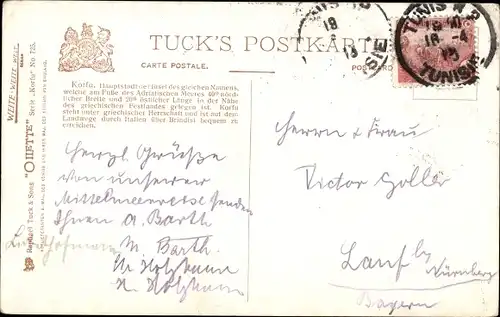 TUCK'S POSTKARTE
CARTE POSTALE.
TUNIS
18
13
TUNIS R.P.
18 -4
TUNISIE
Korfu. Hauptstadt der Insel des gleichen Namens,
welche am Fuße des Adriatischen Meeres 40° nörd-
licher Breite und 20° östlicher Länge in der Nähe
des griechischen Festlandes gelegen ist. Korfu
steht unter griechischer Herrschaft und ist auf dem
Landwege durch Italien über Brindisi bequem zu
erreichen.
Herzl. Grüße
von unserer
Mittelmeerreise senden
Ihnen A. Barth
M. Barth.
Herrn & Frau
Victor Goller
Lauf bei Nürnberg
Bayern
WHITE WHITE WEST
Raphael Tuck & Sons' "OILETTE" Serie „Korfu" No. 725.